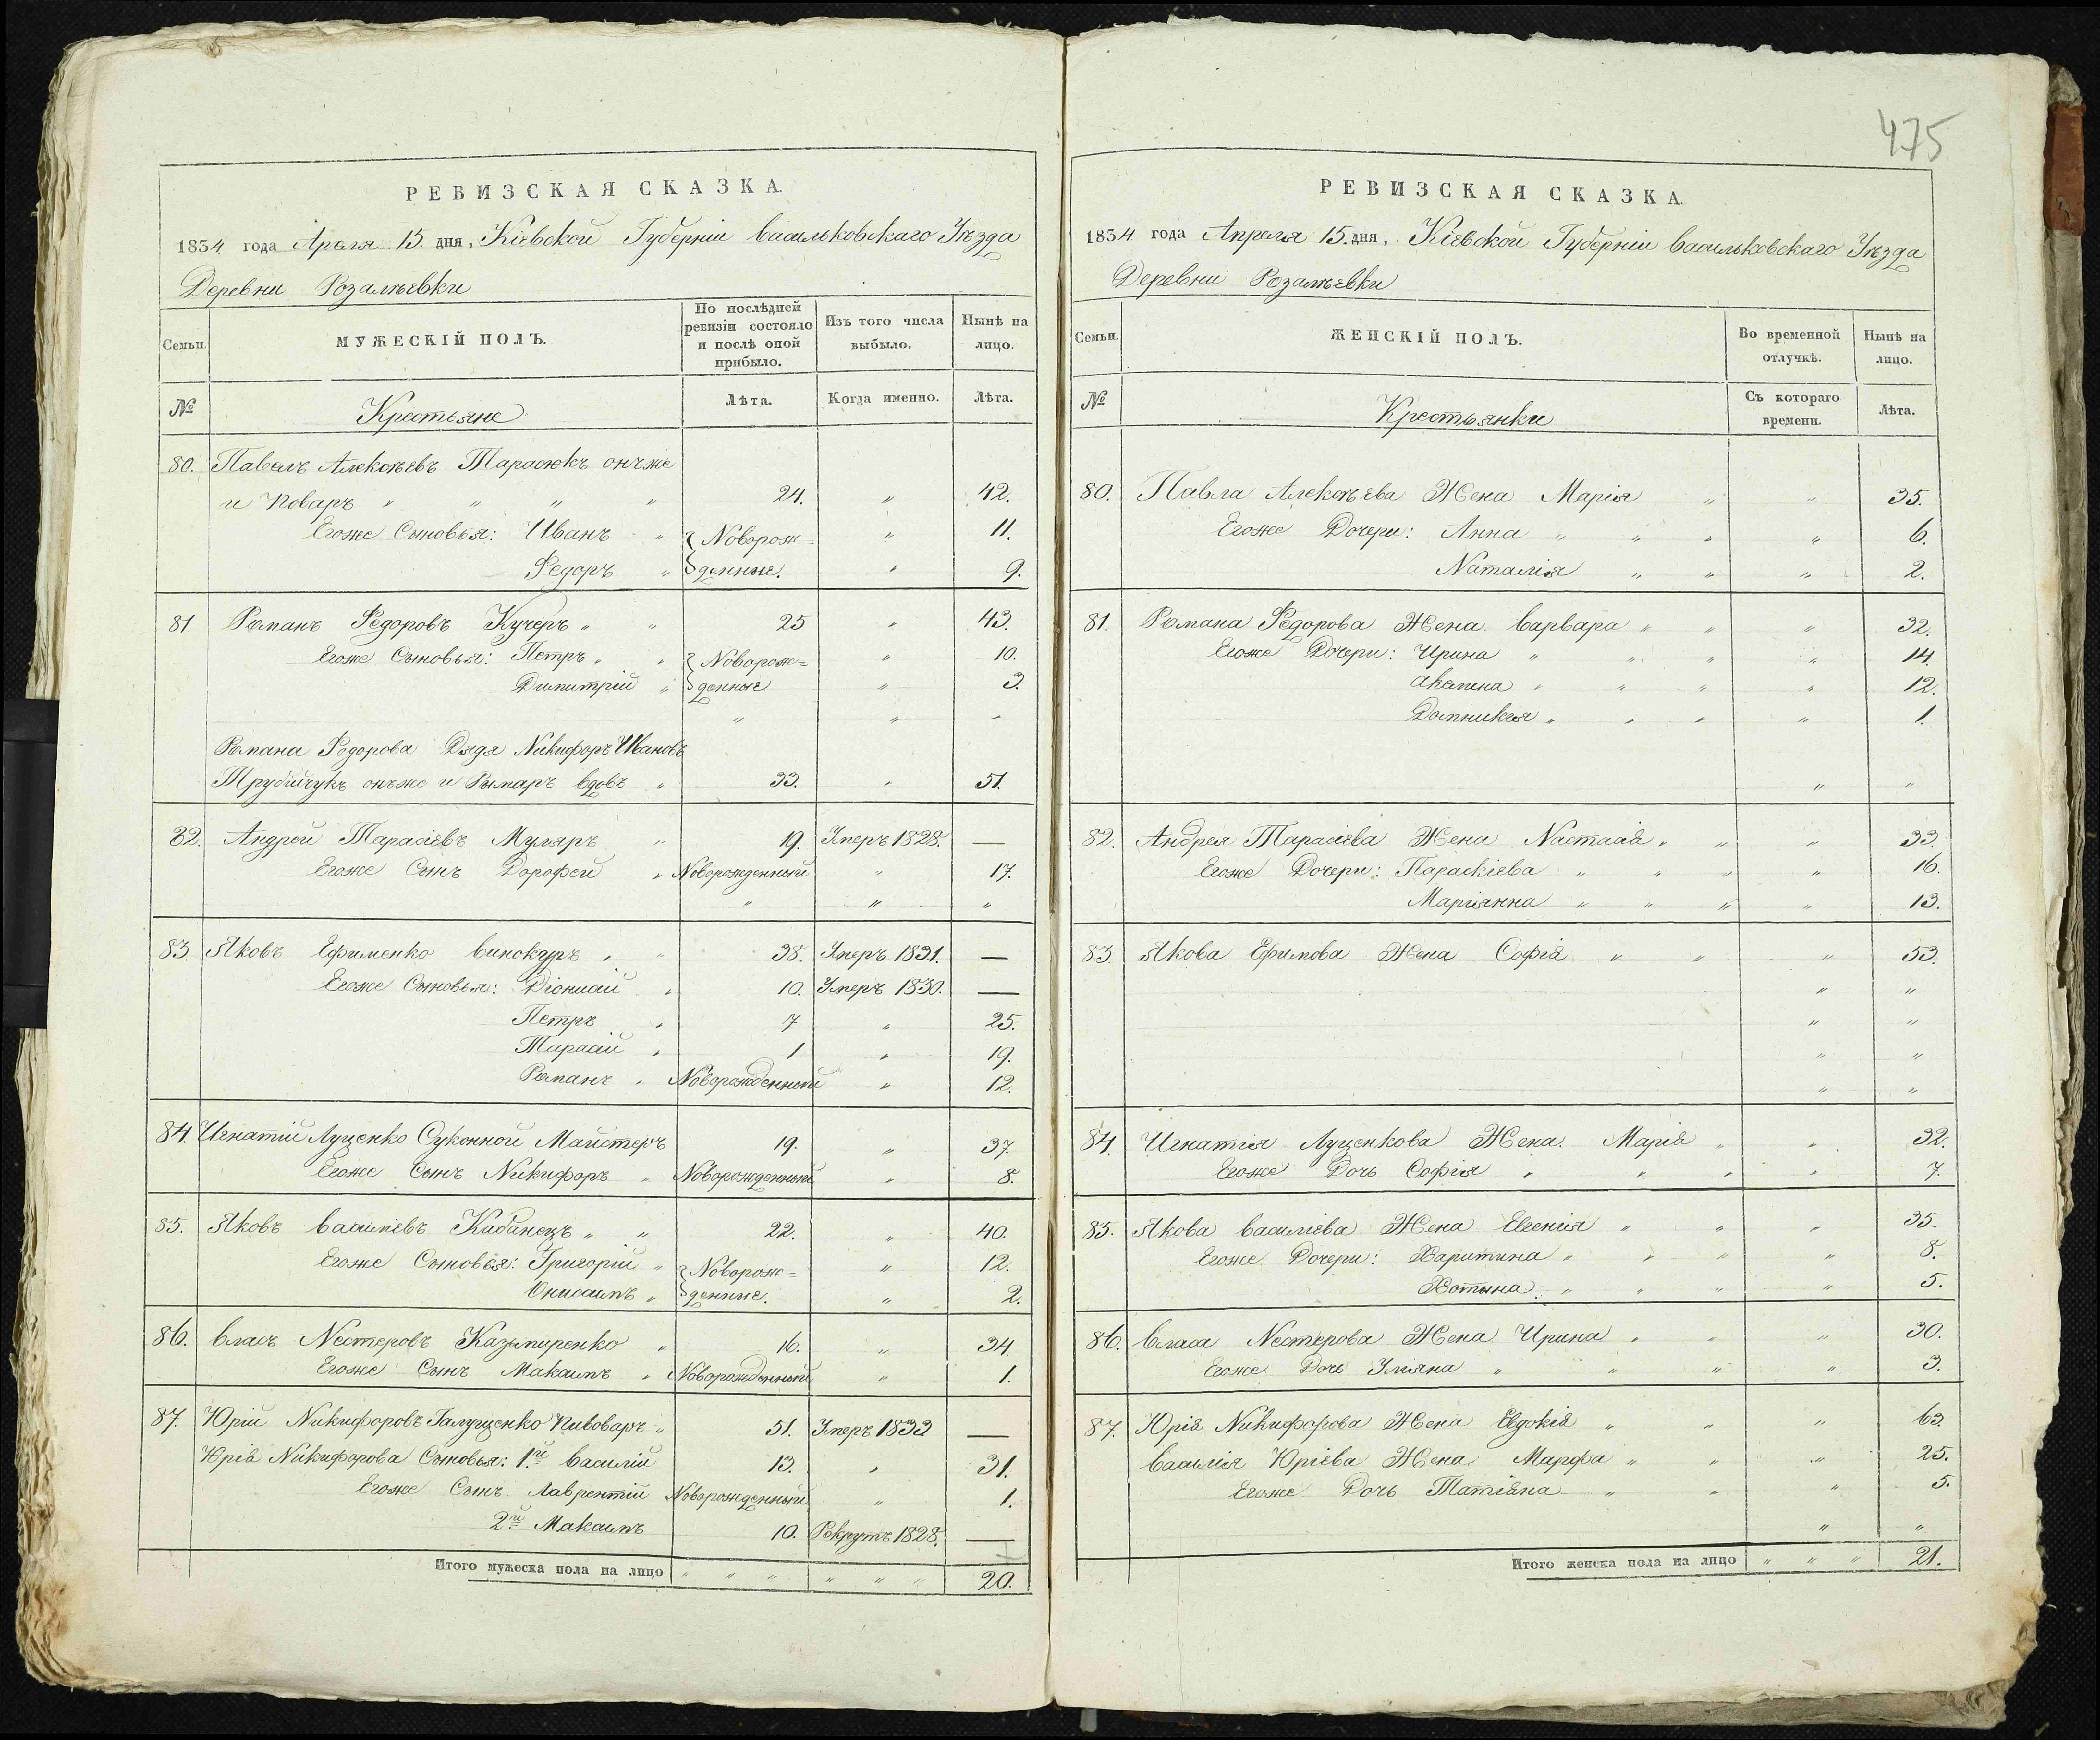 475
РЕВИЗСКАЯ СКАЗКА.
1834 года Апреля 15. дня, Кіевской Губерніи Васильковскаго Уѣзда
Деревни Розалѣевки
Семьи.
МУЖЕСКІЙ ПОЛЪ.
По послѣдней ревизіи состояло и послѣ оной прибыло.
Изъ того числа выбыло.
Нынѣ на лицо.
№
Крестьяне
Лѣта.
Когда именно.
Лѣта.
80. Павелъ Алексѣевъ Тарасюкъ онъже
и Поваръ " " " " 24. " 42.
Егоже Сыновья: Иванъ " Новорож= " 11.
Федоръ " денные. " 9.
81 Романъ Федоровъ Кучеръ " " 25 " 43.
Егоже Сыновья: Петръ " " Новорож= " 10.
Димитрій " денные " 3.
" " "
Романа Федорова Дядя Никифоръ Ивановъ
Трубійчукъ онъже и Рымаръ вдовъ " 33. " 51.
82. Андрей Тарасіевъ Муляръ " 19. Умеръ 1828. —
Егоже Сынъ Дорофей " Новорожденный " 17.
" " "
83 Яковъ Ефименко Винокуръ " " 38. Умеръ 1831. —
Егоже Сыновья: Діонисій " 10. Умеръ 1830. —
Петръ " 7 " 25.
Тарасій " 1 " 19.
Романъ " Новорожденный " 12.
84. Игнатій Луценко Суконной Майстеръ 19. " 37.
Егоже Сынъ Никифоръ " Новорожденный " 8.
85. Яковъ Василіевъ Кабанецъ " " 22. " 40.
Егоже Сыновья: Григорій " Новорож= " 12.
Онисимъ " денные. " 2.
86. Власъ Нестеровъ Казымиренко " 16. " 34.
Егоже Сынъ Максимъ " Новорожденный " 1.
87. Юрій Никифоровъ Галущенко Пивоваръ " 51. Умеръ 1833 —
Юрія Никифорова Сыновья: 1.й Василій 13. " 31.
Егоже Сынъ Лаврентій Новорожденный " 1.
2.й Максимъ 10. Рекрутъ 1828. —
Итого мужеска пола на лицо " " " " " " 20.
РЕВИЗСКАЯ СКАЗКА.
1834 года Апреля 15. дня, Кіевской Губерніи Васильковскаго Уѣзда
Деревни Розалѣевки
Семьи.
ЖЕНСКІЙ ПОЛЪ.
Во временной отлучкѣ.
Нынѣ на лицо.
№
Крестьянки
Съ котораго времени.
Лѣта.
80. Павла Алексѣева Жена Марія " " 35.
Егоже Дочери: Анна " " " " 6.
Наталія " " " 2.
81. Романа Федорова Жена Варвара " " " 32.
Егоже Дочери: Ирина " " " " 14.
Акелина " " " " 12.
Домникія " " " " 1.
" "
82. Андрея Тарасіева Жена Настасія " " " 33.
Егоже Дочери: Параскіева " " " " 16.
Маріянна " " " " 13.
83. Якова Ефимова Жена Софія " " " 53.
" "
" "
" "
" "
84. Игнатія Луценкова Жена Марія " " 32.
Егоже Дочь Софія " " " " 7.
85. Якова Василіева Жена Евгенія " " " 35.
Егоже Дочери: Харитина " " " " 8.
Хотына " " " " 5.
86. Власа Нестерова Жена Ирина " " " 30.
Егоже Дочь Уляна " " " " 3.
87. Юрія Никифорова Жена Евдокія " " " 63.
Василія Юріева Жена Марфа " " " 25.
Егоже Дочь Татіяна " " " 5.
" "
Итого женска пола на лицо " " " 21.